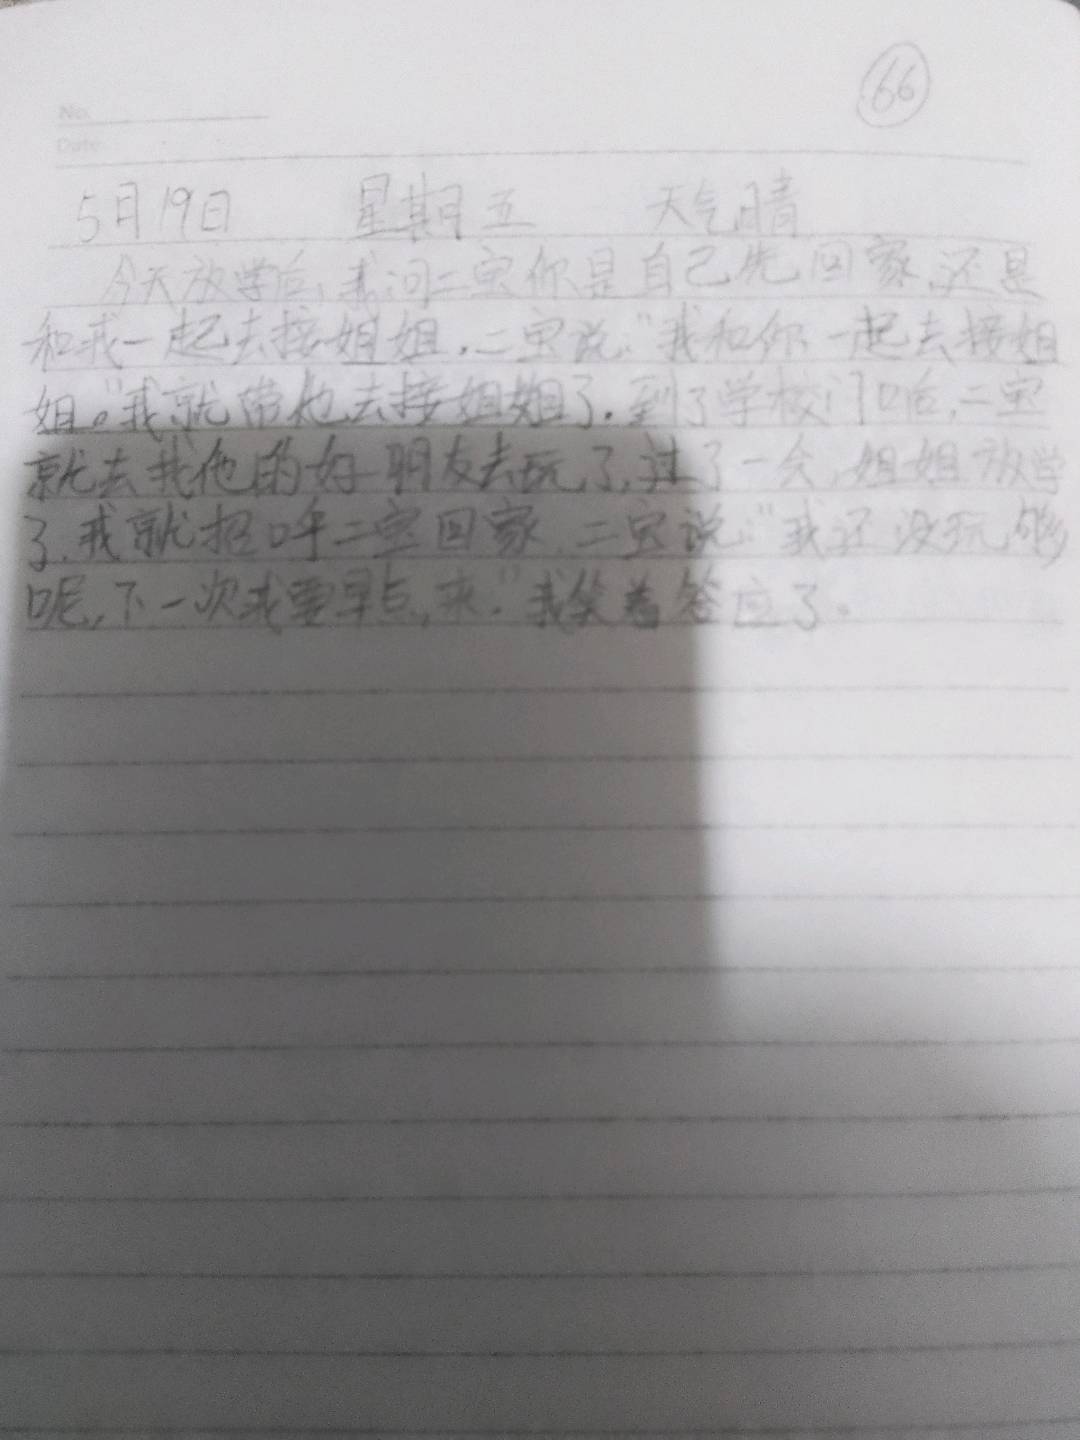 66
No.
Date
5月19日 星期五 天气晴
今天放学后,我问二宝你是自己先回家,还是
和我一起去接姐姐,二宝说:"我和你一起去接姐
姐。"我就带他去接姐姐了.到了学校门口后,二宝
就去找他的好朋友去玩了,过了一会,姐姐放学
了,我就招呼二宝回家,二宝说:"我还没玩够
呢,下一次我要早点来."我笑着答应了。